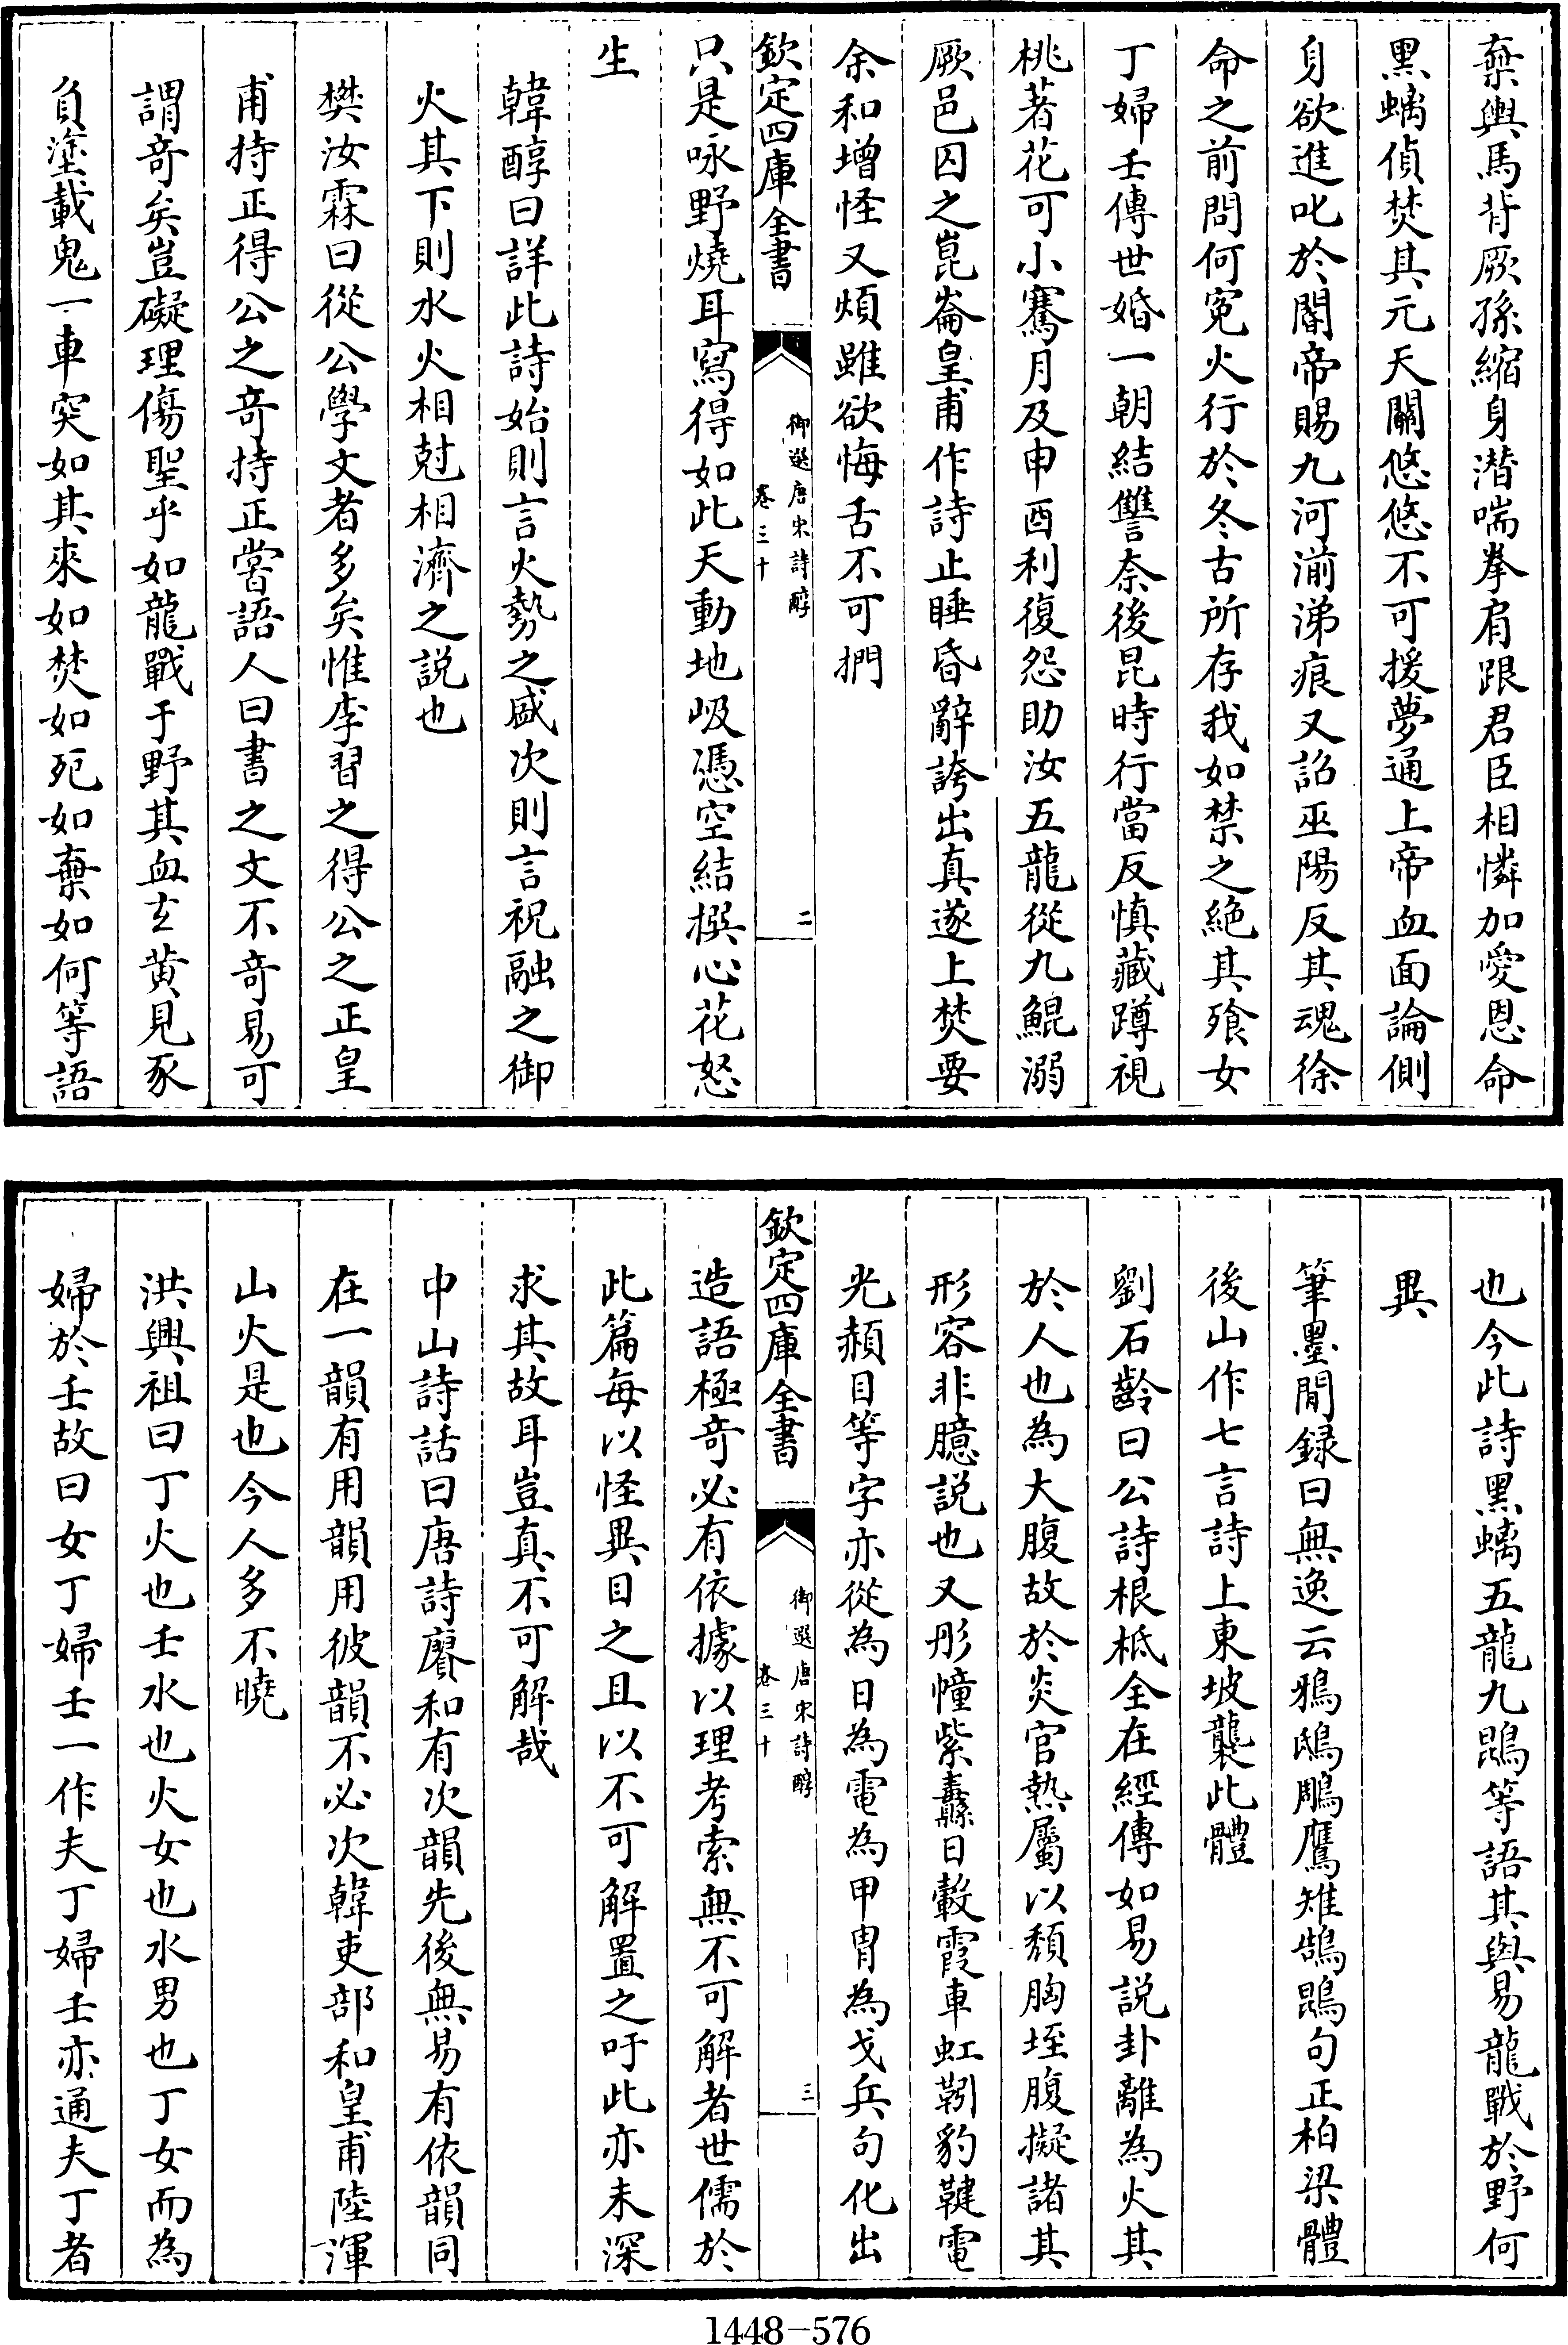 棄輿馬背厥孫縮身潛喘拳肩跟君臣相憐加愛恩命
黑螭偵焚其元天闕悠悠不可援夢通上帝血面論側
身欲進叱於閽帝賜九河湔涕痕又詔巫陽反其魂徐
命之前問何寃火行於冬古所存我如禁之絶其飱女
丁婦壬傳世婚一朝結讐奈後昆時行當反慎藏蹲視
桃著花可小騫月及申酉利復怨助汝五龍從九鯤溺
厥邑囚之崑崙皇甫作詩止睡昏辭誇出真遂上焚要
余和增怪又煩雖欲悔舌不可捫
欽定四庫全書
御選唐宋詩醇
卷三十
二
只是咏野燒耳寫得如此天動地岋憑空結撰心花怒
生
韓醇曰詳此詩始則言火勢之盛次則言祝融之御
火其下則水火相尅相濟之説也
樊汝霖曰從公學文者多矣惟李習之得公之正皇
甫持正得公之竒持正嘗語人曰書之文不竒易可
謂竒矣豈礙理傷聖乎如龍戰于野其血𤣥黄見豕
負塗載鬼一車突如其來如焚如死如棄如何等語
也今此詩黑螭五龍九鵾等語其與易龍戰於野何
異
筆墨閒録曰無逸云鴉鴟鵰鷹雉鵠鵾句正柏梁體
後山作七言詩上東坡襲此體
劉石齡曰公詩根柢全在經傳如易説卦離為火其
於人也為大腹故於炎官熱屬以頽胸垤腹擬諸其
形容非臆説也又彤幢紫纛日轂霞車虹靷豹鞬電
光赬目等字亦從為日為電為甲胄為戈兵句化出
欽定四庫全書
御選唐宋詩醇
卷三十
三
造語極竒必有依據以理考索無不可解者世儒於
此篇每以怪異目之且以不可解置之吁此亦未深
求其故耳豈真不可解哉
中山詩話曰唐詩賡和有次韻先後無易有依韻同
在一韻有用韻用彼韻不必次韓吏部和皇甫陸渾
山火是也今人多不曉
洪興祖曰丁火也壬水也火女也水男也丁女而為
婦於壬故曰女丁婦壬一作夫丁婦壬亦通夫丁者
1448-576